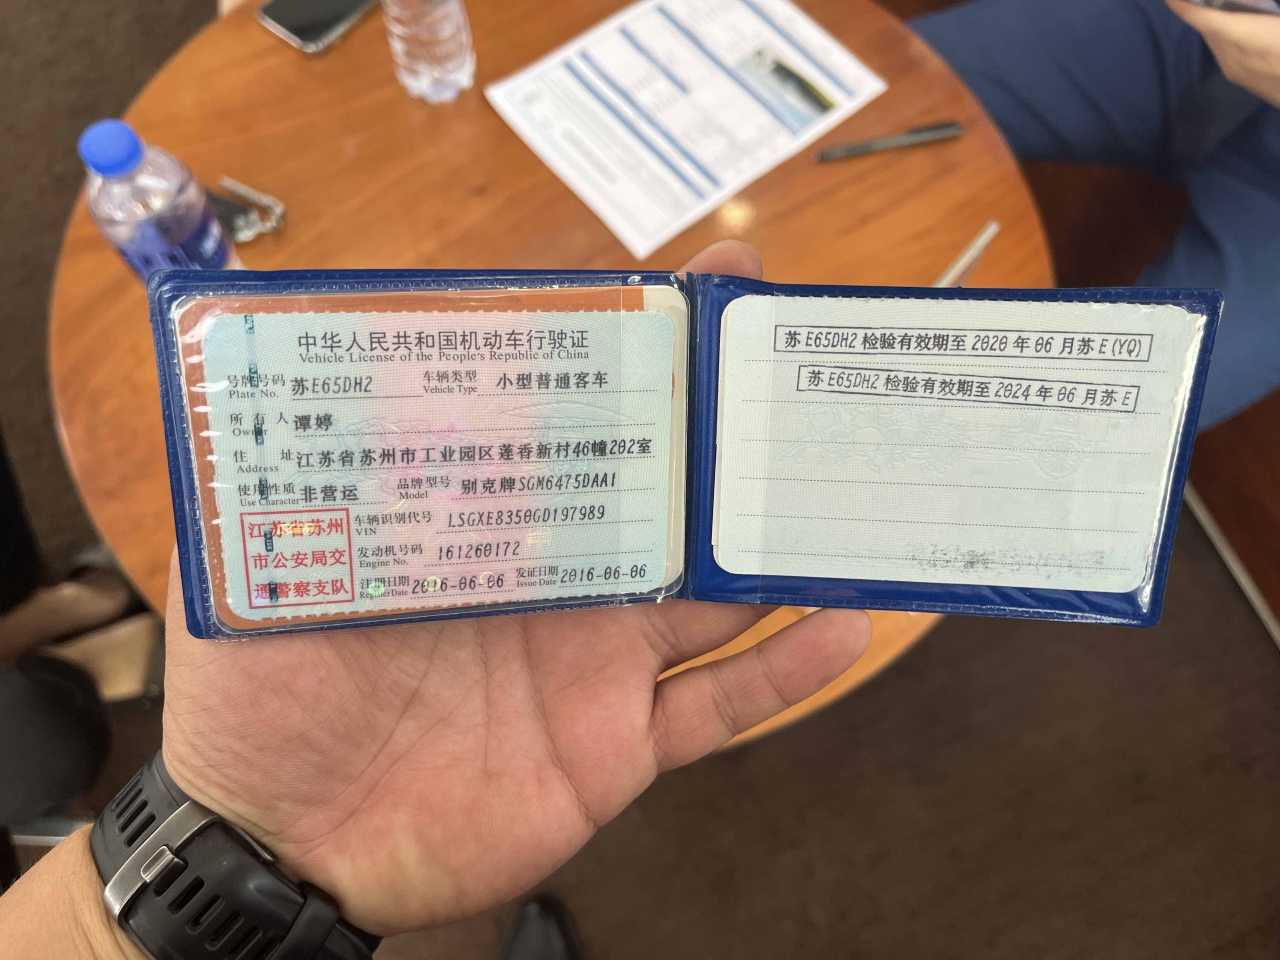 中华人民共和国机动车行驶证
Vehicle License of the People's Republic of China
号牌号码 苏E65DH2 车辆类型 小型普通客车
Plate No. Vehicle Type
所有人 谭婷
Owner
住址 江苏省苏州市工业园区莲香新村46幢202室
Address
使用性质 非营运 品牌型号 别克牌SGM6475DAA1
Use Character Model
江苏省苏州
市公安局交
通警察支队
车辆识别代号 LSGXE8350GD197989
VIN
发动机号码 161260172
Engine No.
注册日期 2016-06-06 发证日期 2016-06-06
Register Date Issue Date
苏E65DH2 检验有效期至 2020 年 06 月苏E(YQ)
苏E65DH2 检验有效期至 2024 年 06 月苏E